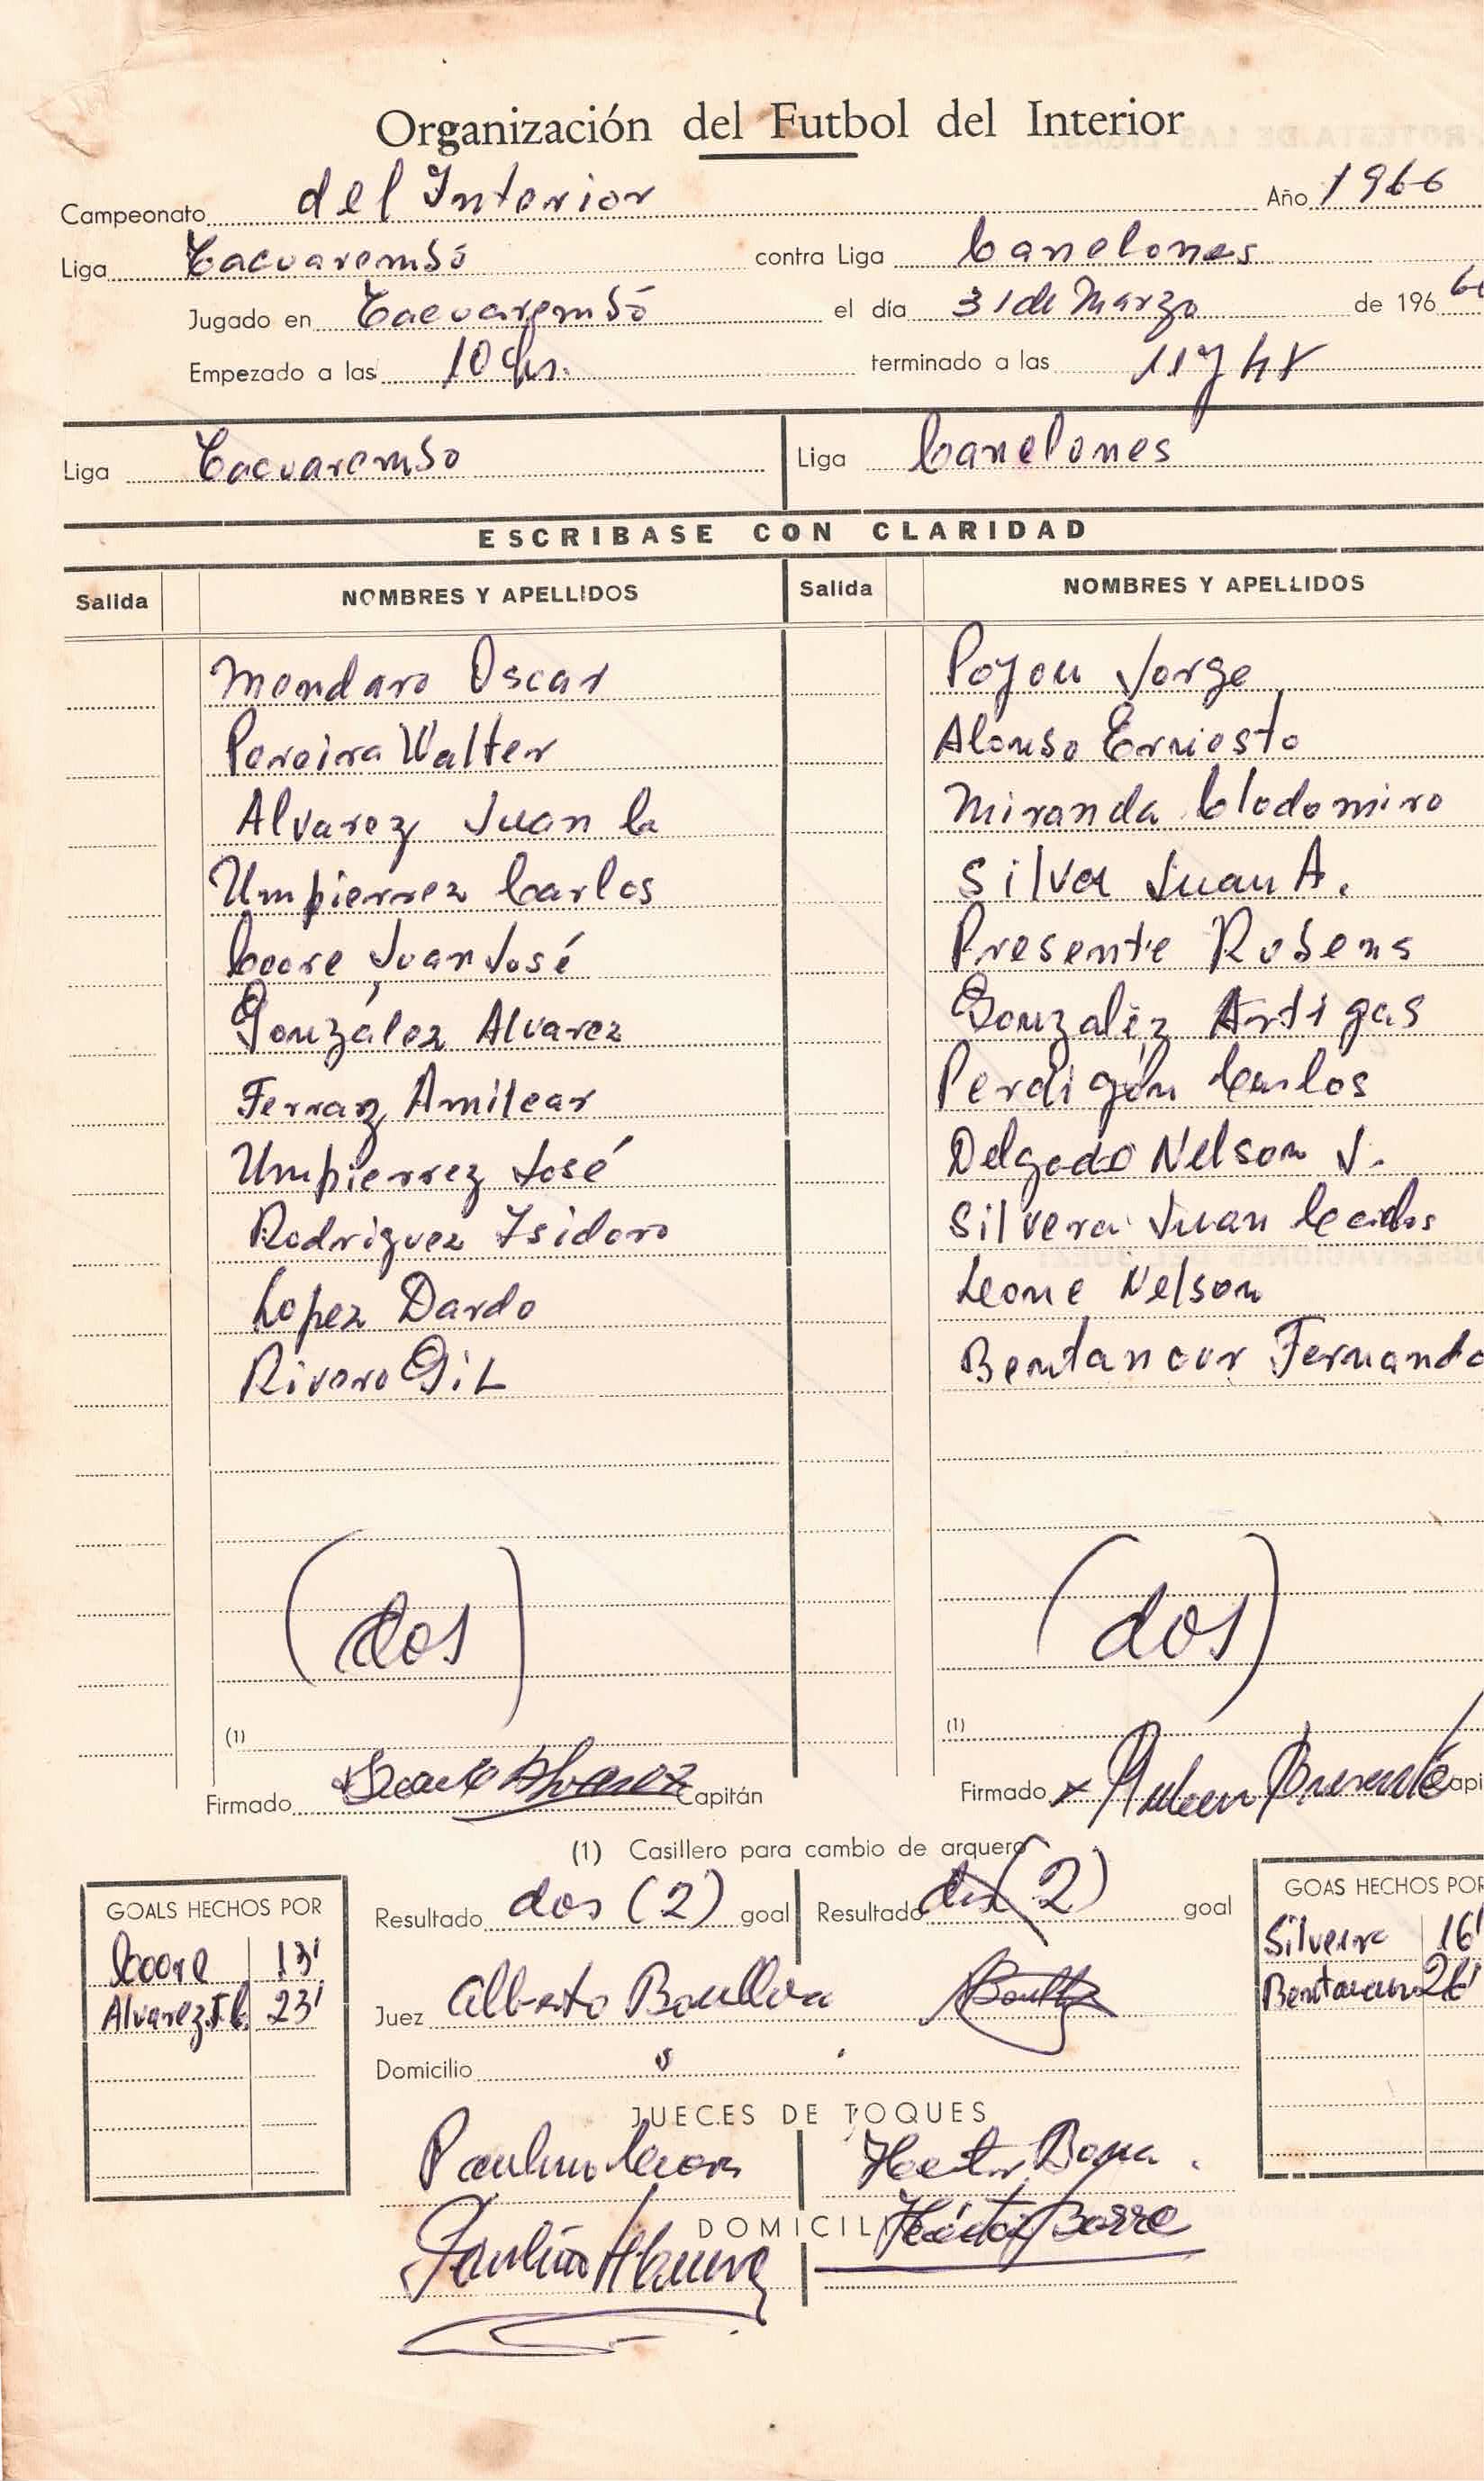 Organización del Futbol del Interior
Campeonato del Interior Año 1966
Liga Tacuarembó contra Liga Canelones
Jugado en Tacuarembó el día 31 de Marzo de 196
Empezado a las 10 hs. terminado a las 11 y 48
Liga Tacuarembo Liga Canelones
ESCRIBASE CON CLARIDAD
Salida NOMBRES Y APELLIDOS Salida NOMBRES Y APELLIDOS
Mondaro Oscar Poyou Jorge
Pereira Walter Alonso Erniesto
Alvarez Juan C Miranda Clodomiro
Umpierrez Carlos Silva Juan A.
Coore Juan José Presente Rubens
González Alvarez Gonzalez Artigas
Ferraz Amilcar Perdigón Carlos
Umpierrez José Delgado Nelson J.
Rodriguez Isidoro Silvera Juan Carlos
Lopez Dardo Leone Nelson
Rivero Gil Bentancur Fernando
(dos) (dos)
(1) (1)
Firmado Alvarez Capitán Firmado x Ruben Presente
(1) Casillero para cambio de arquero
GOALS HECHOS POR Resultado dos (2) goal Resultado dos (2) goal GOAS HECHOS POR
Coore 13' Silveira 16'
Alvarez J.C. 23' Juez Alberto Boullosa Bentancur 26'
Domicilio
JUECES DE TOQUES
Paulino Hector
DOMICILI